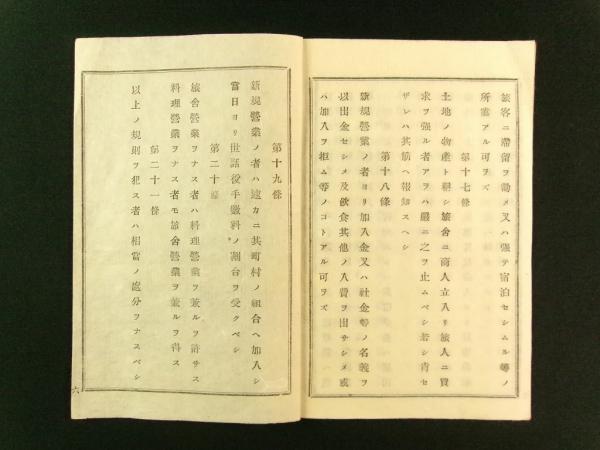 旅客ニ滞留ヲ勸メ又ハ强テ宿泊セシムル等ノ
所業アル可ラズ
第十七條
土地ノ物產ト稱シ旅舍ニ商人立入リ旅人ニ買
求ヲ强ル者アラハ嚴ニ之ヲ止ムベシ若シ肯セ
ザレハ其筋ヘ報知スヘシ
第十八條
新規營業ノ者ヨリ加入金又ハ社金等ノ名義ヲ
以出金セシメ及飮食其他ノ入費ヲ出サシメ或
ハ加入ヲ拒ム等ノコトアル可ラズ
第十九條
新規營業ノ者ハ速カニ其町村ノ組合ヘ加入シ
當日ヨリ世話役手數料ノ割合ヲ受クベシ
第二十條
旅舍營業ヲナス者ハ料理營業ヲ兼ルヲ許サス
料理營業ヲナス者モ旅舍營業ヲ兼ルヲ得ス
第二十一條
以上ノ規則ヲ犯ス者ハ相當ノ處分ヲナスベシ
六